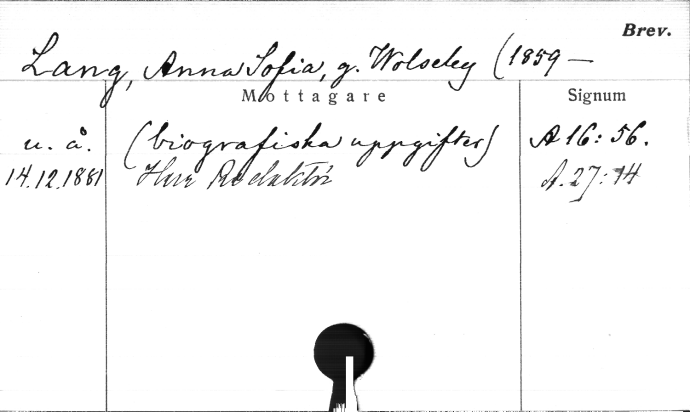 Brev.
Lang, Anna Sofia, g. Wolseley (1859 —
Mottagare Signum
u. å. (biografiska uppgifter) A 16: 56.
14.12.1881 Herr Redaktör A. 27: 14